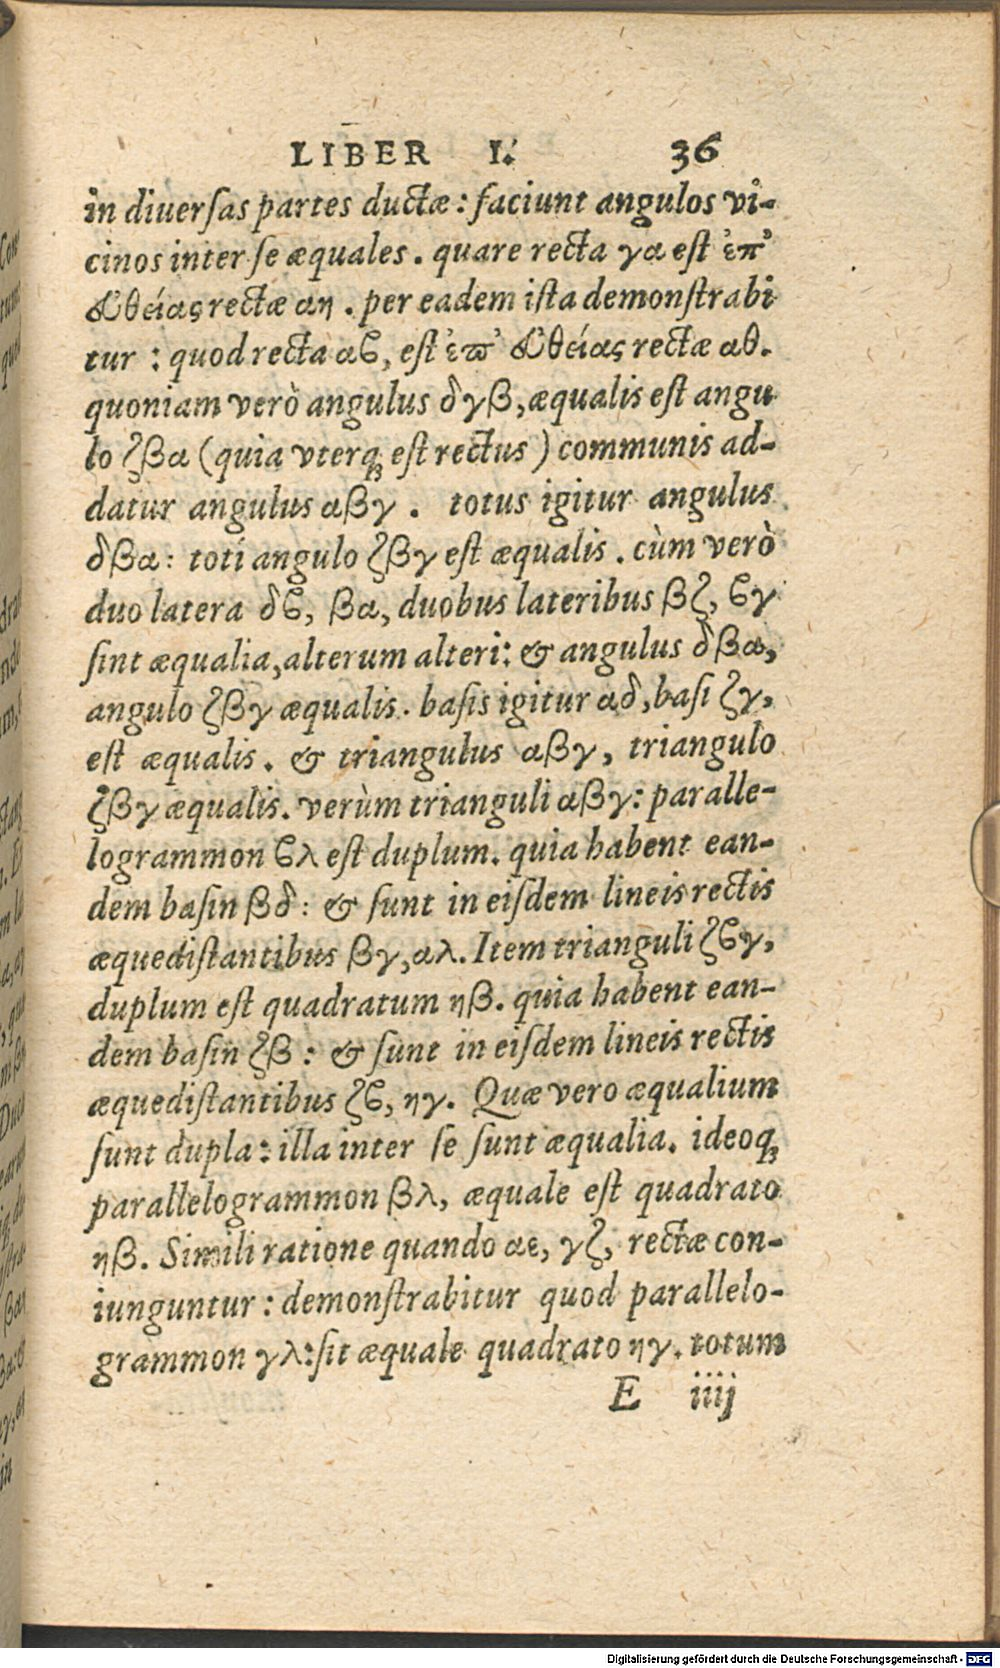 LIBER I. 36
in diuerſas partes ductæ: faciunt angulos vi-
cinos inter ſe æquales. quare recta γα eſt ἐπ'
εὐθείας rectæ αη. per eadem iſta demonſtrabi
tur: quod recta αϐ, eſt ἐϖ' εὐθείας rectæ αθ.
quoniam verò angulus δγβ, æqualis eſt angu
lo ζβα (quia vterq; eſt rectus) communis ad-
datur angulus αβγ. totus igitur angulus
δβα: toti angulo ζβγ eſt æqualis. cùm verò
duo latera δϐ, βα, duobus lateribus βζ, ϐγ
ſint æqualia, alterum alteri: & angulus δβα,
angulo ζβγ æqualis. baſis igitur αδ, baſi ζγ,
eſt æqualis. & triangulus αβγ, triangulo
ζβγ æqualis. verùm trianguli αβγ: paralle-
logrammon ϐλ eſt duplum. quia habent ean-
dem baſin βδ: & ſunt in eiſdem lineis rectis
æquediſtantibus βγ, αλ. Item trianguli ζϐγ,
duplum eſt quadratum ηβ. quia habent ean-
dem baſin ζβ: & ſunt in eiſdem lineis rectis
æquediſtantibus ζϐ, ηγ. Quæ vero æqualium
ſunt dupla: illa inter ſe ſunt æqualia. ideoq;
parallelogrammon βλ, æquale eſt quadrato
ηβ. Simili ratione quando αε, γζ, rectæ con-
iunguntur: demonſtrabitur quod parallelo-
grammon γλ: ſit æquale quadrato ηγ. totum
E iiij
Digitalisierung gefördert durch die Deutsche Forschungsgemeinschaft - DFG